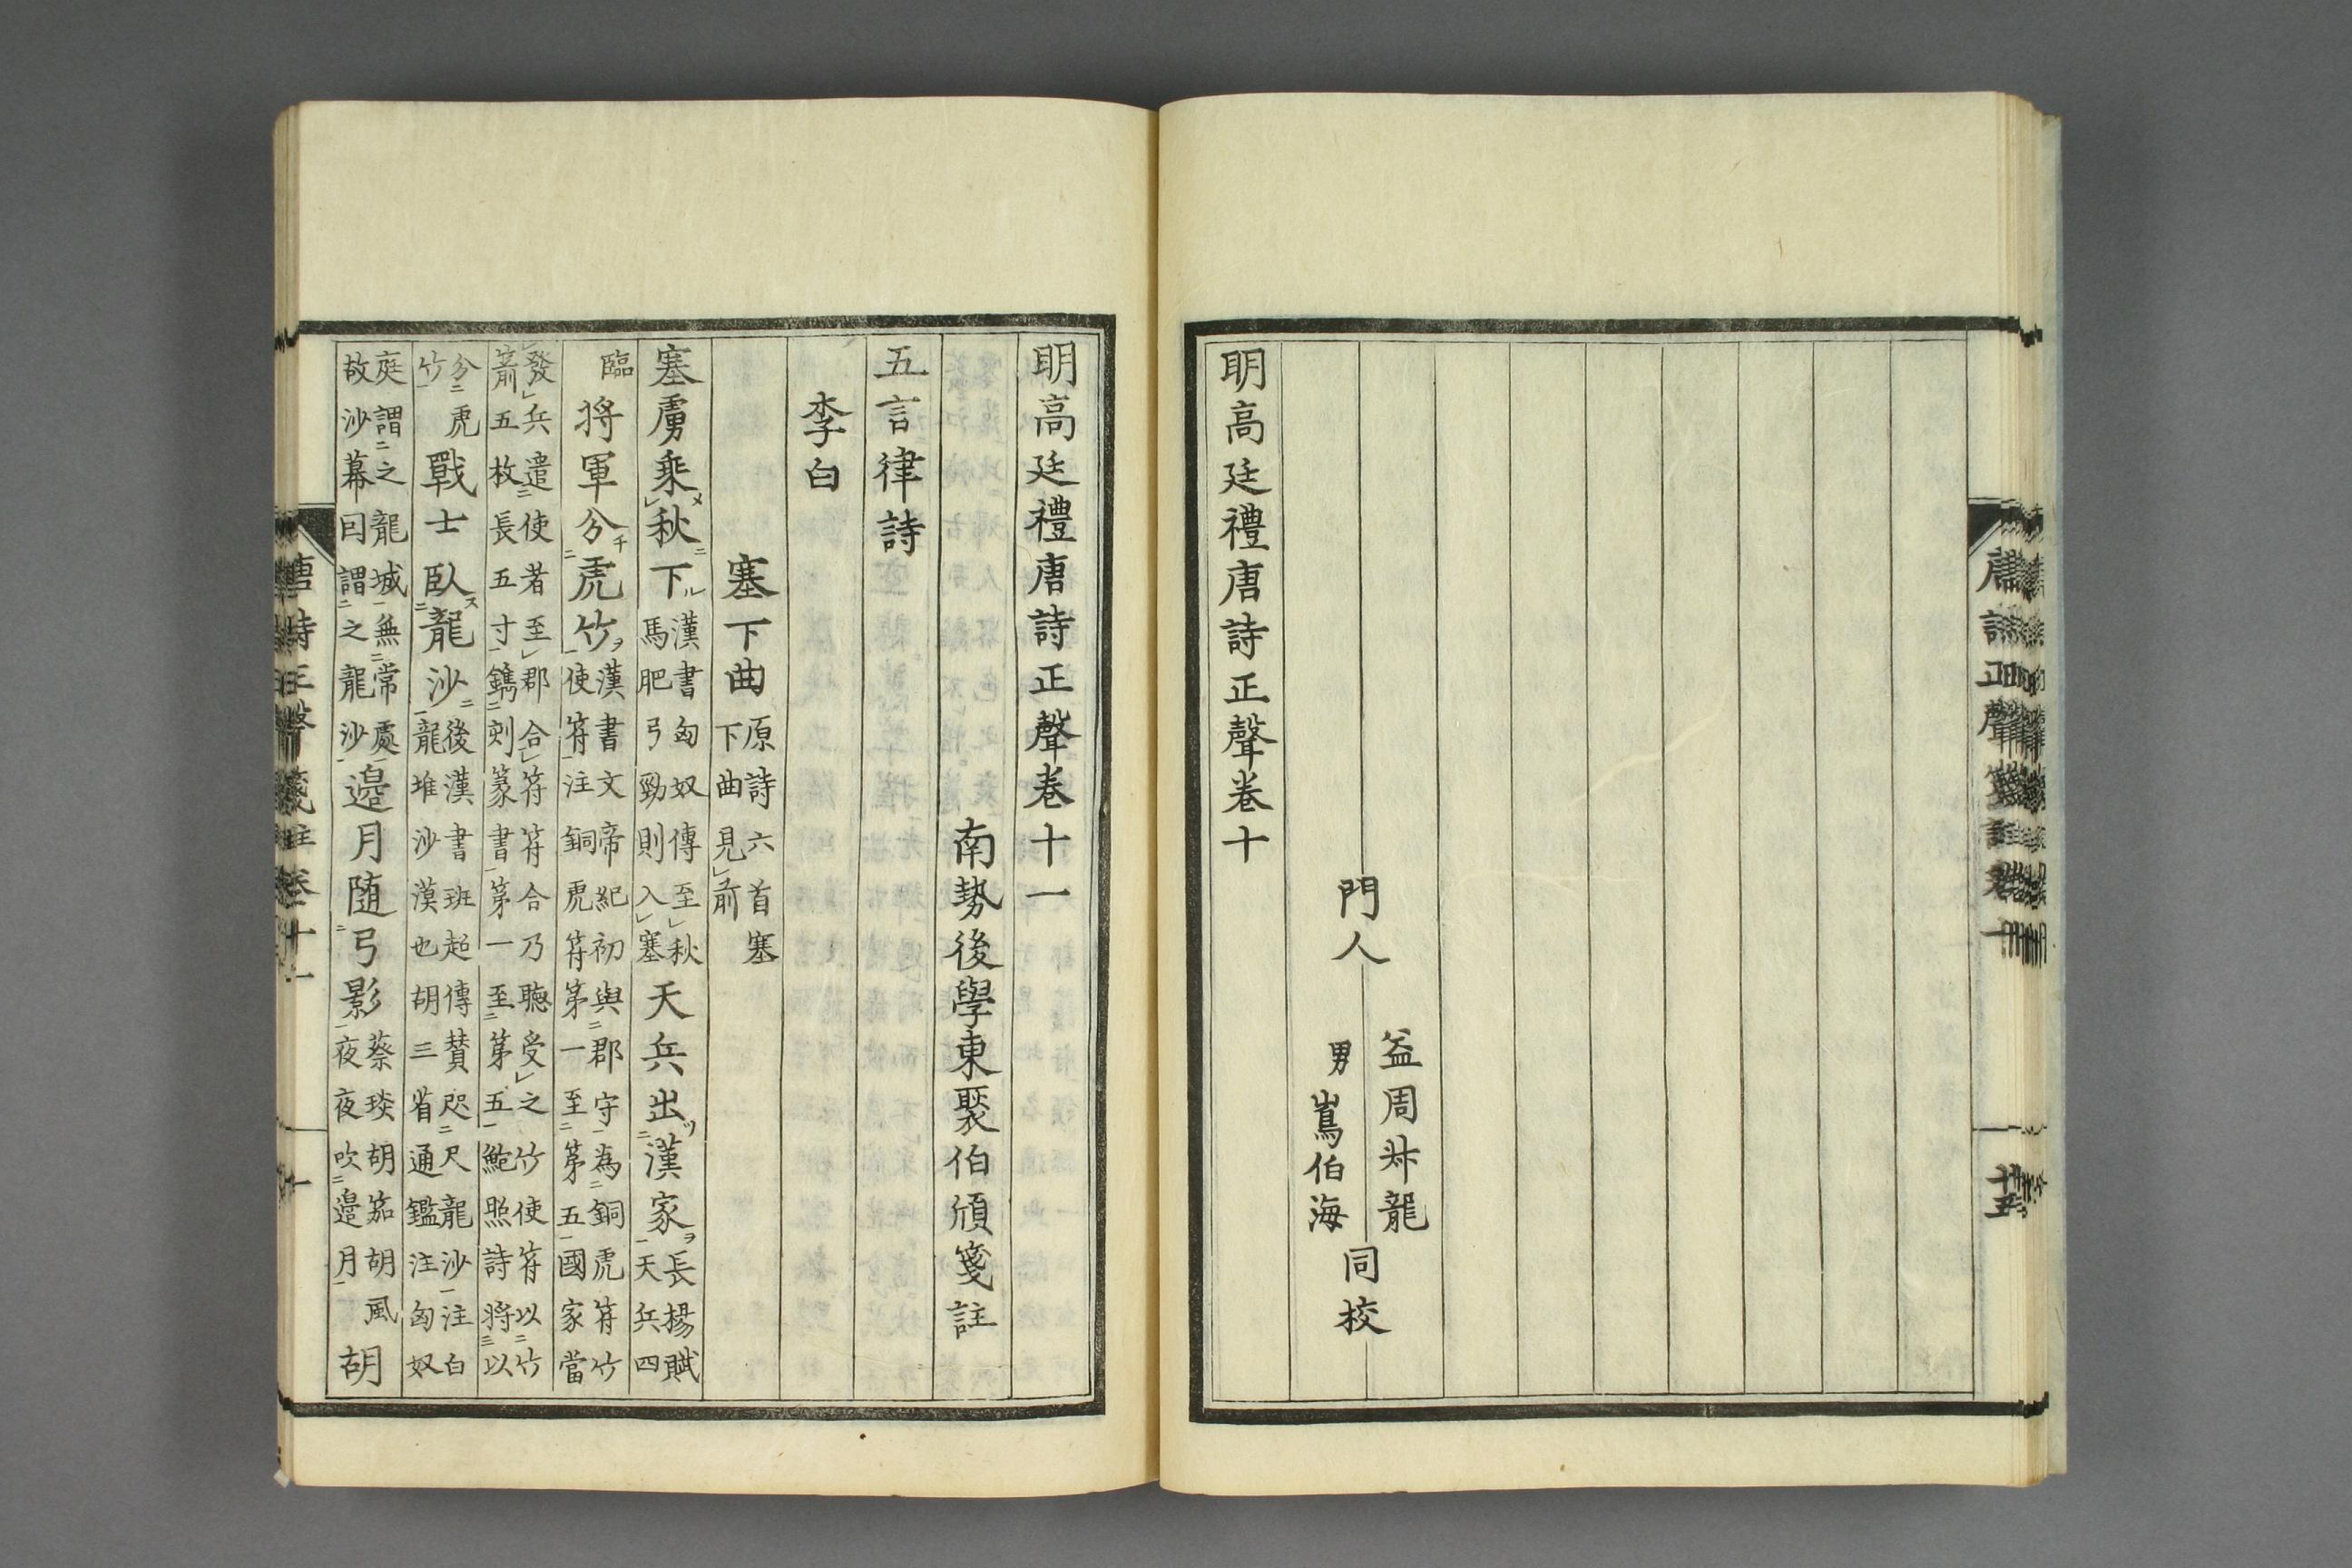 門人
益周舛龍
男嶌伯海
同校
明高廷禮唐詩正聲卷十
明高廷禮唐詩正聲卷十一
南勢後學東褧伯頎箋註
五言律詩
李白
塞下曲原詩六首塞下曲見前
塞虜乘秋下漢書匈奴傳至秋馬肥弓勁則入塞天兵出漢家長楊賦天兵四
臨將軍分虎竹漢書文帝紀初與郡守為銅虎符竹使符注銅虎符第一至第五國家當
發兵遣使者至郡合符符合乃聽受之竹使符以竹箭五枚長五寸鐫刻篆書第一至第五鮑照詩將以
分虎竹戰士臥龍沙後漢書班超傳贊咫尺龍沙注白龍堆沙漠也胡三省通鑑注匈奴
庭謂之龍城無常處故沙幕曰謂之龍沙邉月随弓影蔡琰胡笳胡風夜夜吹邉月胡